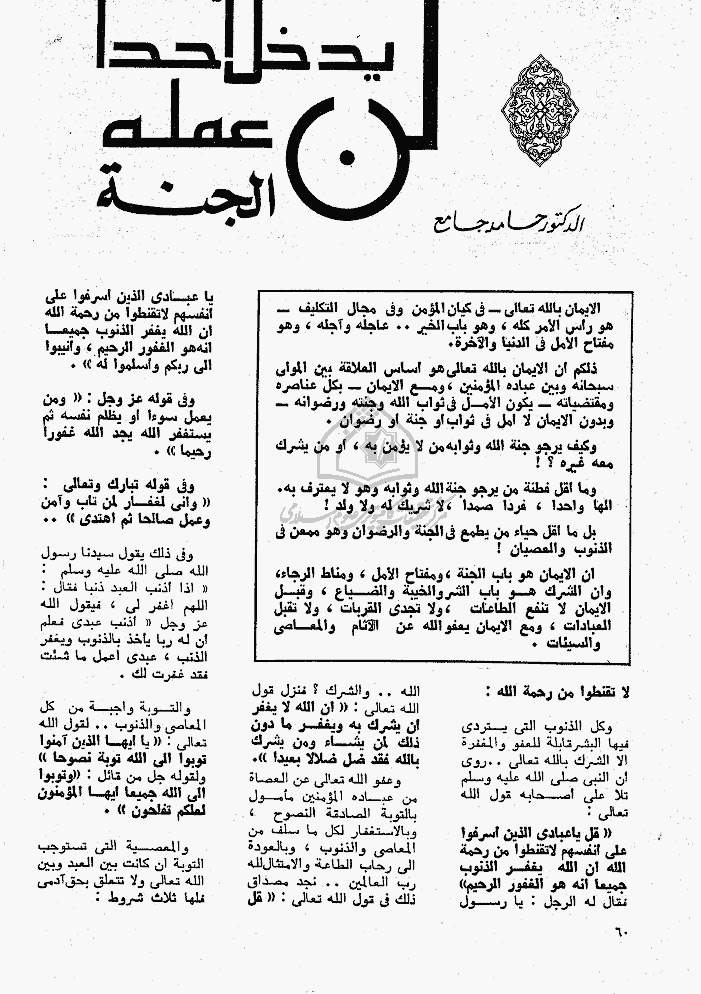 لن
يدخل أحدا
عمله
الجنة
الدكتور حامد جامع
الايمان بالله تعالى ــ فى كيان المؤمن وفى مجال التكليف ــ
هو رأس الأمر كله ، وهو باب الخير .. عاجله وآجله ، وهو
مفتاح الأمل فى الدنيا والآخرة.
ذلكم أن الايمان بالله تعالى هو أساس العلاقة بين المولى
سبحانه وبين عباده المؤمنين ، ومــع الايمان ــ بكل عناصره
ومقتضياته ــ يكون الأمــل فى ثواب الله وجنته ورضوانه ــ
وبدون الايمان لا أمل فى ثواب أو جنة أو رضوان .
وكيف يرجو جنة الله وثوابه من لا يؤمن به ، أو من يشرك
معه غيره ؟ !
وما أقل فطنة من يرجو جنة الله وثوابه وهو لا يعترف به.
الها واحدا ، فردا صمدا ، لا شريك له ولا ولد !
بل ما أقل حياء من يطمع فى الجنة والرضوان وهو ممعن فى
الذنوب والعصيان !
ان الايمان هو باب الجنة ، ومفتاح الأمل ، ومناط الرجاء،
وان الشرك هــو باب الشر والخيبة والضــياع ، وقبــل
الايمان لا تنفع الطاعات ، ولا تجدى القربات ، ولا تقبل
العبادات ، ومع الايمان يعفو الله عن الآثام والمعــاصى
والسيئات .
لا تقنطوا من رحمة الله :
وكل الذنوب التى يــتردى
فيها البشر قابلة للعفو والمغفرة
الا الشرك بالله تعالى .. روى
أن النبى صلى الله عليه وسلم
تلا على أصــحابه قول الله
تعالى :
« قل ياعبادى الذين أسرفوا
على أنفسهم لاتقنطوا من رحمة
الله ان الله يغفــر الذنوب
جميعا انه هو الغفور الرحيم»
فقال له الرجل : يا رســول
الله .. والشرك ؟ فنزل قول
الله تعالى : « ان الله لا يغفر
أن يشرك به ويغفــر ما دون
ذلك لمن يشــاء ومن يشرك
بالله فقد ضل ضلالا بعيدا ».
وعفو الله تعالى عن العصاة
من عبــاده المؤمنين مأمــول
بالتوبة الصادقة النصوح ،
وبالاستغفار لكل ما سلف من
المعاصى والذنوب ، وبالعودة
الى رحاب الطاعة والامتثال لله
رب العالمين .. نجد مصداق
ذلك فى قول الله تعالى : « قل
يا عبــادى الذين أسرفوا على
أنفسهم لاتقنطوا من رحمة الله
ان الله يغفر الذنوب جميعــا
انه هو الغفور الرحيم ، وأنيبوا
الى ربكم وأسلموا له » .
وفى قوله عز وجل : « ومن
يعمل سوءا أو يظلم نفسه ثم
يستغفر الله يجد الله غفورا
رحيما » .
وفى قوله تبارك وتعالى :
« وانى لغفــار لمن تاب وآمن
وعمل صالحا ثم اهتدى » ..
وفى ذلك يقول سيدنا رسول
الله صلى الله عليه وسلم :
« اذا أذنب العبد ذنبا فقال :
اللهم اغفر لى ، فيقول الله
عز وجل « أذنب عبدى فعلم
أن له ربا يأخذ بالذنوب ويغفر
الذنب ، عبدى اعمل ما شئت
فقد غفرت لك .
والتــوبة واجبــة من كل
المعاصى والذنوب .. لقول الله
تعالى : « يا أيهــا الذين آمنوا
توبوا الى الله توبة نصوحا »
ولقوله جل من قائل : «وتوبوا
الى الله جميعا أيهــا المؤمنون
لعلكم تفلحون » .
والمعصــية التى تستوجب
التوبة ان كانت بين العبد وبين
الله تعالى ولا تتعلق بحق آدمى
فلها ثلاث شروط :
٦٠